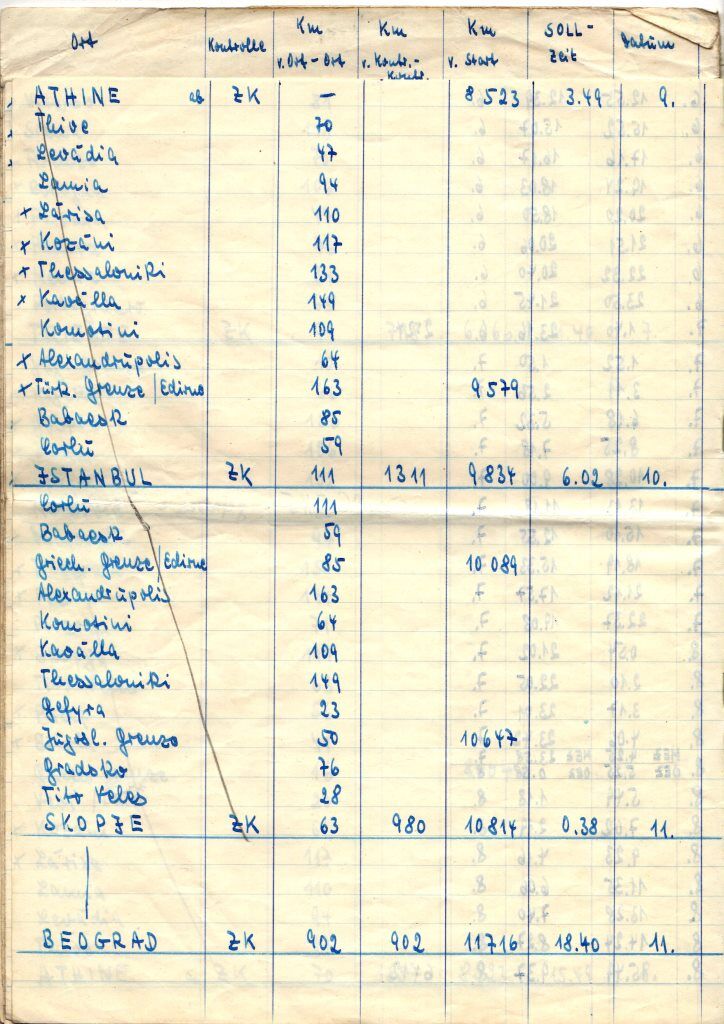 Ort Kontrolle Km v. Ort - Ort Km v. Kontr. - Kontr. Km v. Start SOLL - Zeit Datum
ATHINE ab ZK — 8 523 3.49 9.
Thive 70
Levádia 47
Lamia 94
x Lárisa 110
x Kozáni 117
x Thessaloniki 133
x Kaválla 149
Komotini 109
x Alexandrúpolis 64
x Türk. Grenze / Edirne 163 9 579
Babaesk 85
Corlu 59
ISTANBUL ZK 111 1311 9 834 6.02 10.
Corlu 111
Babaesk 59
Griech. Grenze / Edirne 85 10 089
Alexandrúpolis 163
Komotini 64
Kaválla 109
Thessaloniki 149
Gefyra 23
Jugosl. Grenze 50 10 647
Gradsko 76
Tito Veles 28
SKOPJE ZK 63 980 10 814 0.38 11.
BEOGRAD ZK 902 902 11 716 18.40 11.